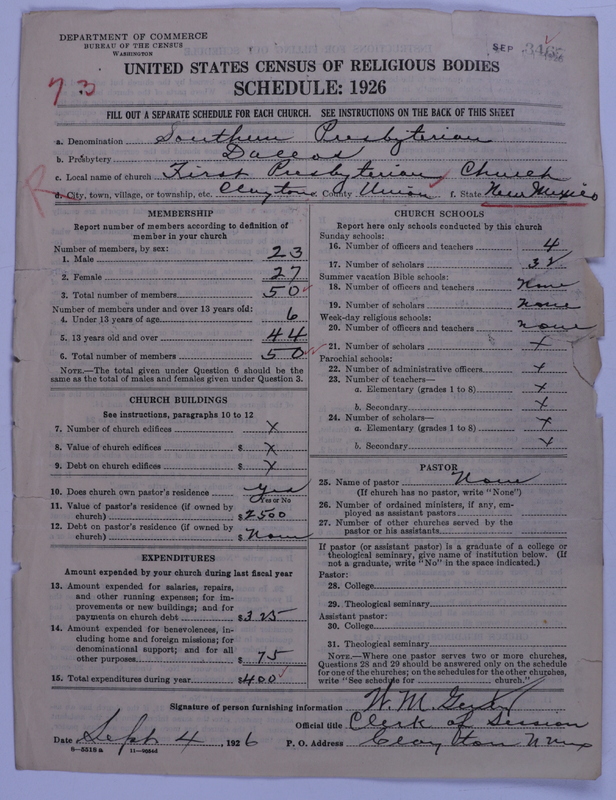 DEPARTMENT OF COMMERCE
BUREAU OF THE CENSUS
WASHINGTON
SEP
73
UNITED STATES CENSUS OF RELIGIOUS BODIES
SCHEDULE: 1926
FILL OUT A SEPARATE SCHEDULE FOR EACH CHURCH. SEE INSTRUCTIONS ON THE BACK OF THIS SHEET
a. Denomination Southern Presbyterian
b. Presbytery Dallas
c. Local name of church First Presbyterian Church
d. City, town, village, or township, etc. Clayton e. County Union f. State New Mexico
MEMBERSHIP
Report number of members according to definition of
member in your church
Number of members, by sex:
1. Male 23
2. Female 27
3. Total number of members 50
Number of members under and over 13 years old:
4. Under 13 years of age 6
5. 13 years old and over 44
6. Total number of members 50
NOTE.—The total given under Question 6 should be
same as the total of males and females given under Question 3.
CHURCH BUILDINGS
See instructions, paragraphs 10 to 12
7. Number of church edifices x
8. Value of church edifices $ x
9. Debt on church edifices $ x
10. Does church own pastor's residence Yes
Yes or No
11. Value of pastor's residence (if owned by
church) $2500
12. Debt on pastor's residence (if owned by
church) $ None
EXPENDITURES
Amount expended by your church during last fiscal year
13. Amount expended for salaries, repairs,
and other running expenses; for im-
provements or new buildings; and for
payments on church debt $325
14. Amount expended for benevolences, in-
cluding home and foreign missions; for
denominational support; and for all
other purposes $ 75
15. Total expenditures during year $400
CHURCH SCHOOLS
Report here only schools conducted by this church
Sunday schools:
16. Number of officers and teachers 4
17. Number of scholars 32
Summer vacation Bible schools:
18. Number of officers and teachers None
19. Number of scholars None
Week-day religious schools:
20. Number of officers and teachers none
21. Number of scholars x
Parochial schools:
22. Number of administrative officers x
23. Number of teachers—
a. Elementary (grades 1 to 8) x
b. Secondary x
24. Number of scholars—
a. Elementary (grades 1 to 8) x
b. Secondary x
PASTOR
25. Name of pastor None
(If church has no pastor, write "None")
26. Number of ordained ministers, if any, em-
ployed as assistant pastors
27. Number of other churches served by the
pastor or his assistants
If pastor (or assistant pastor) is a graduate of a college or
theological seminary, give name of institution below. (If
not a graduate, write "No" in the space indicated.)
Pastor:
28. College
29. Theological seminary
Assistant pastor:
30. College
31. Theological seminary
NOTE.—Where one pastor serves two or more churches,
Questions 28 and 29 should be answered only on the schedule
for one of the churches; on the schedules for the other churches,
write "See schedule for church."
Signature of person furnishing information W. M.
Official title Clerk of Session
Date Sept 4, 1926 P. O. Address Clayton N Mex
8—5518 a